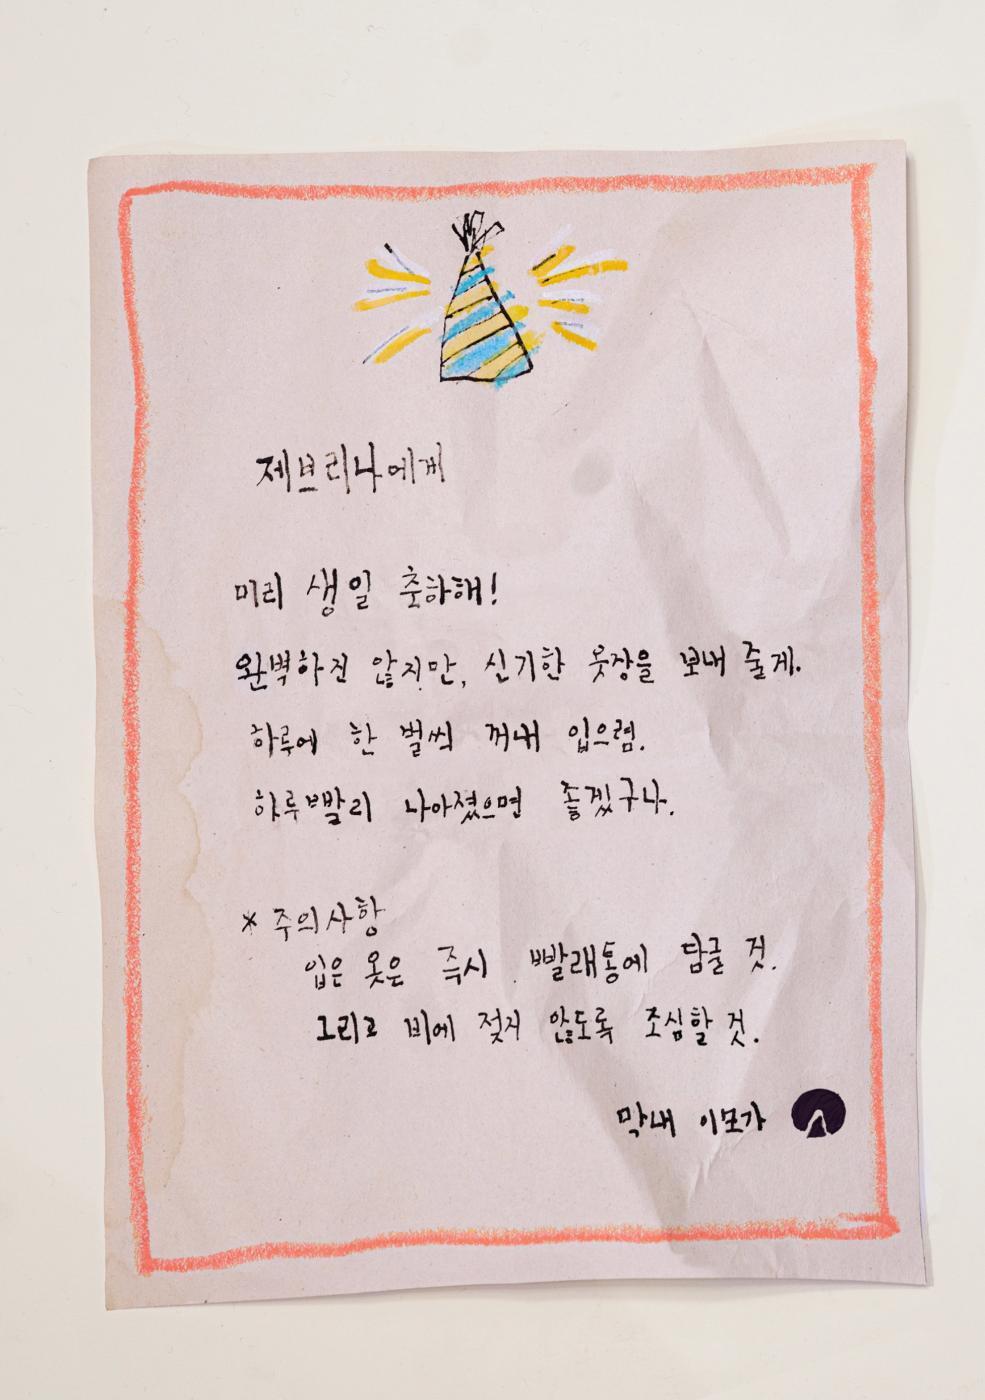 제브리나에게
미리 생일 축하해!
완벽하진 않지만, 신기한 옷장을 보내 줄게.
하루에 한 벌씩 꺼내 입으렴.
하루빨리 나아졌으면 좋겠구나.
* 주의사항
입은 옷은 즉시 빨래통에 담글 것.
그리고 비에 젖지 않도록 조심할 것.
막내 이모가